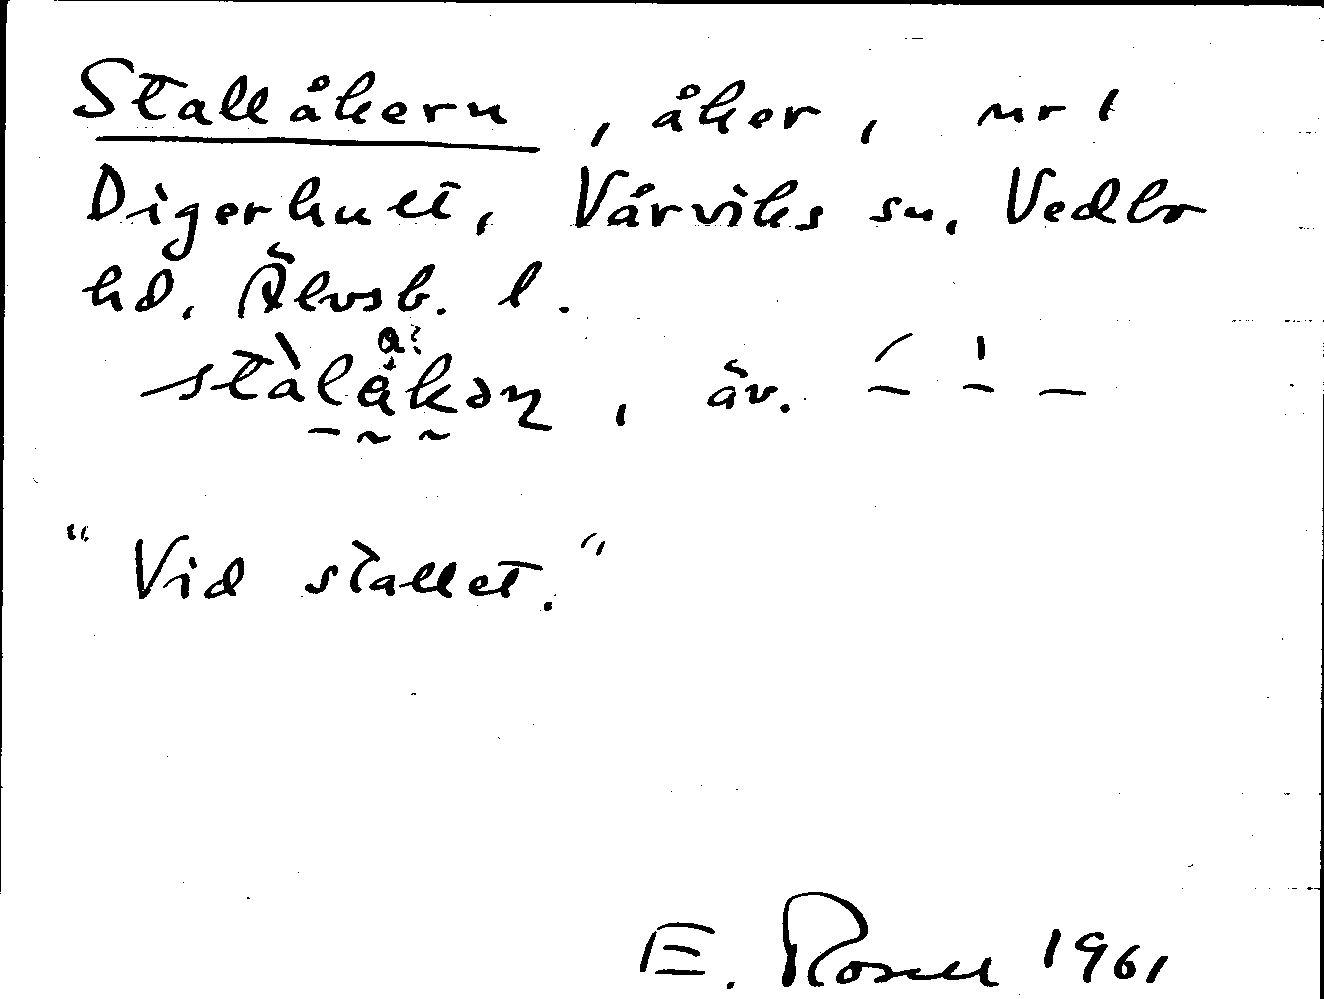 Stallåkern, åker, nr 1
Digerhult, Vårviks sn. Vedbo
hd. Älvsb. l.
stàlåkən, äv.
"Vid stallet."
E. Rosell 1961